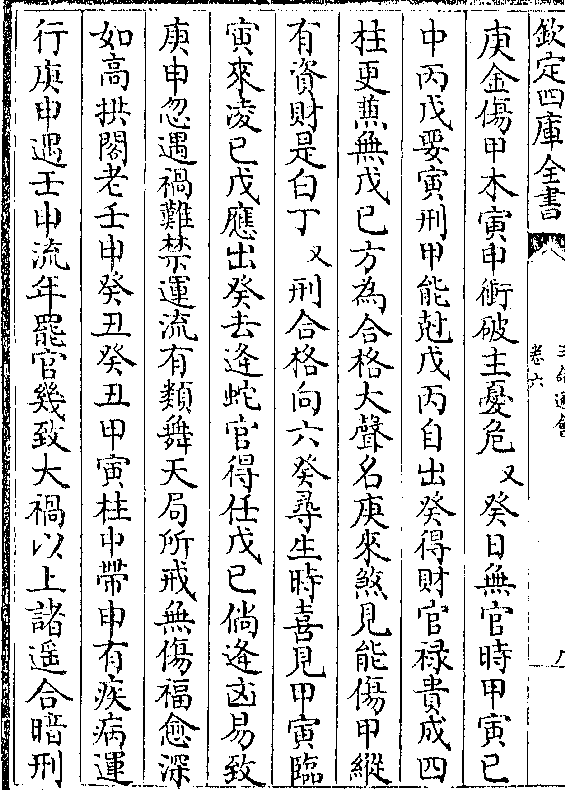 欽定四庫全書
三命通會
卷六
八
庚金傷甲木寅申衝破主憂危 又癸日無官時甲寅已
中丙戊要寅刑甲能尅戊丙自出癸得財官禄貴成四
柱更無戊巳方為合格大聲名庚來煞見能傷甲縱
有資財是白丁 又刑合格向六癸尋生時喜見甲寅臨
寅來凌巳戊應出癸去逢蛇官得任戊巳倘逢凶易致
庚申忽遇禍難禁運流有類舞天局所戒無傷福愈深
如高拱閣老壬申癸丑癸丑甲寅柱中帶申有疾病運
行庚申遇壬申流年罷官幾致大禍以上諸遥合暗刑